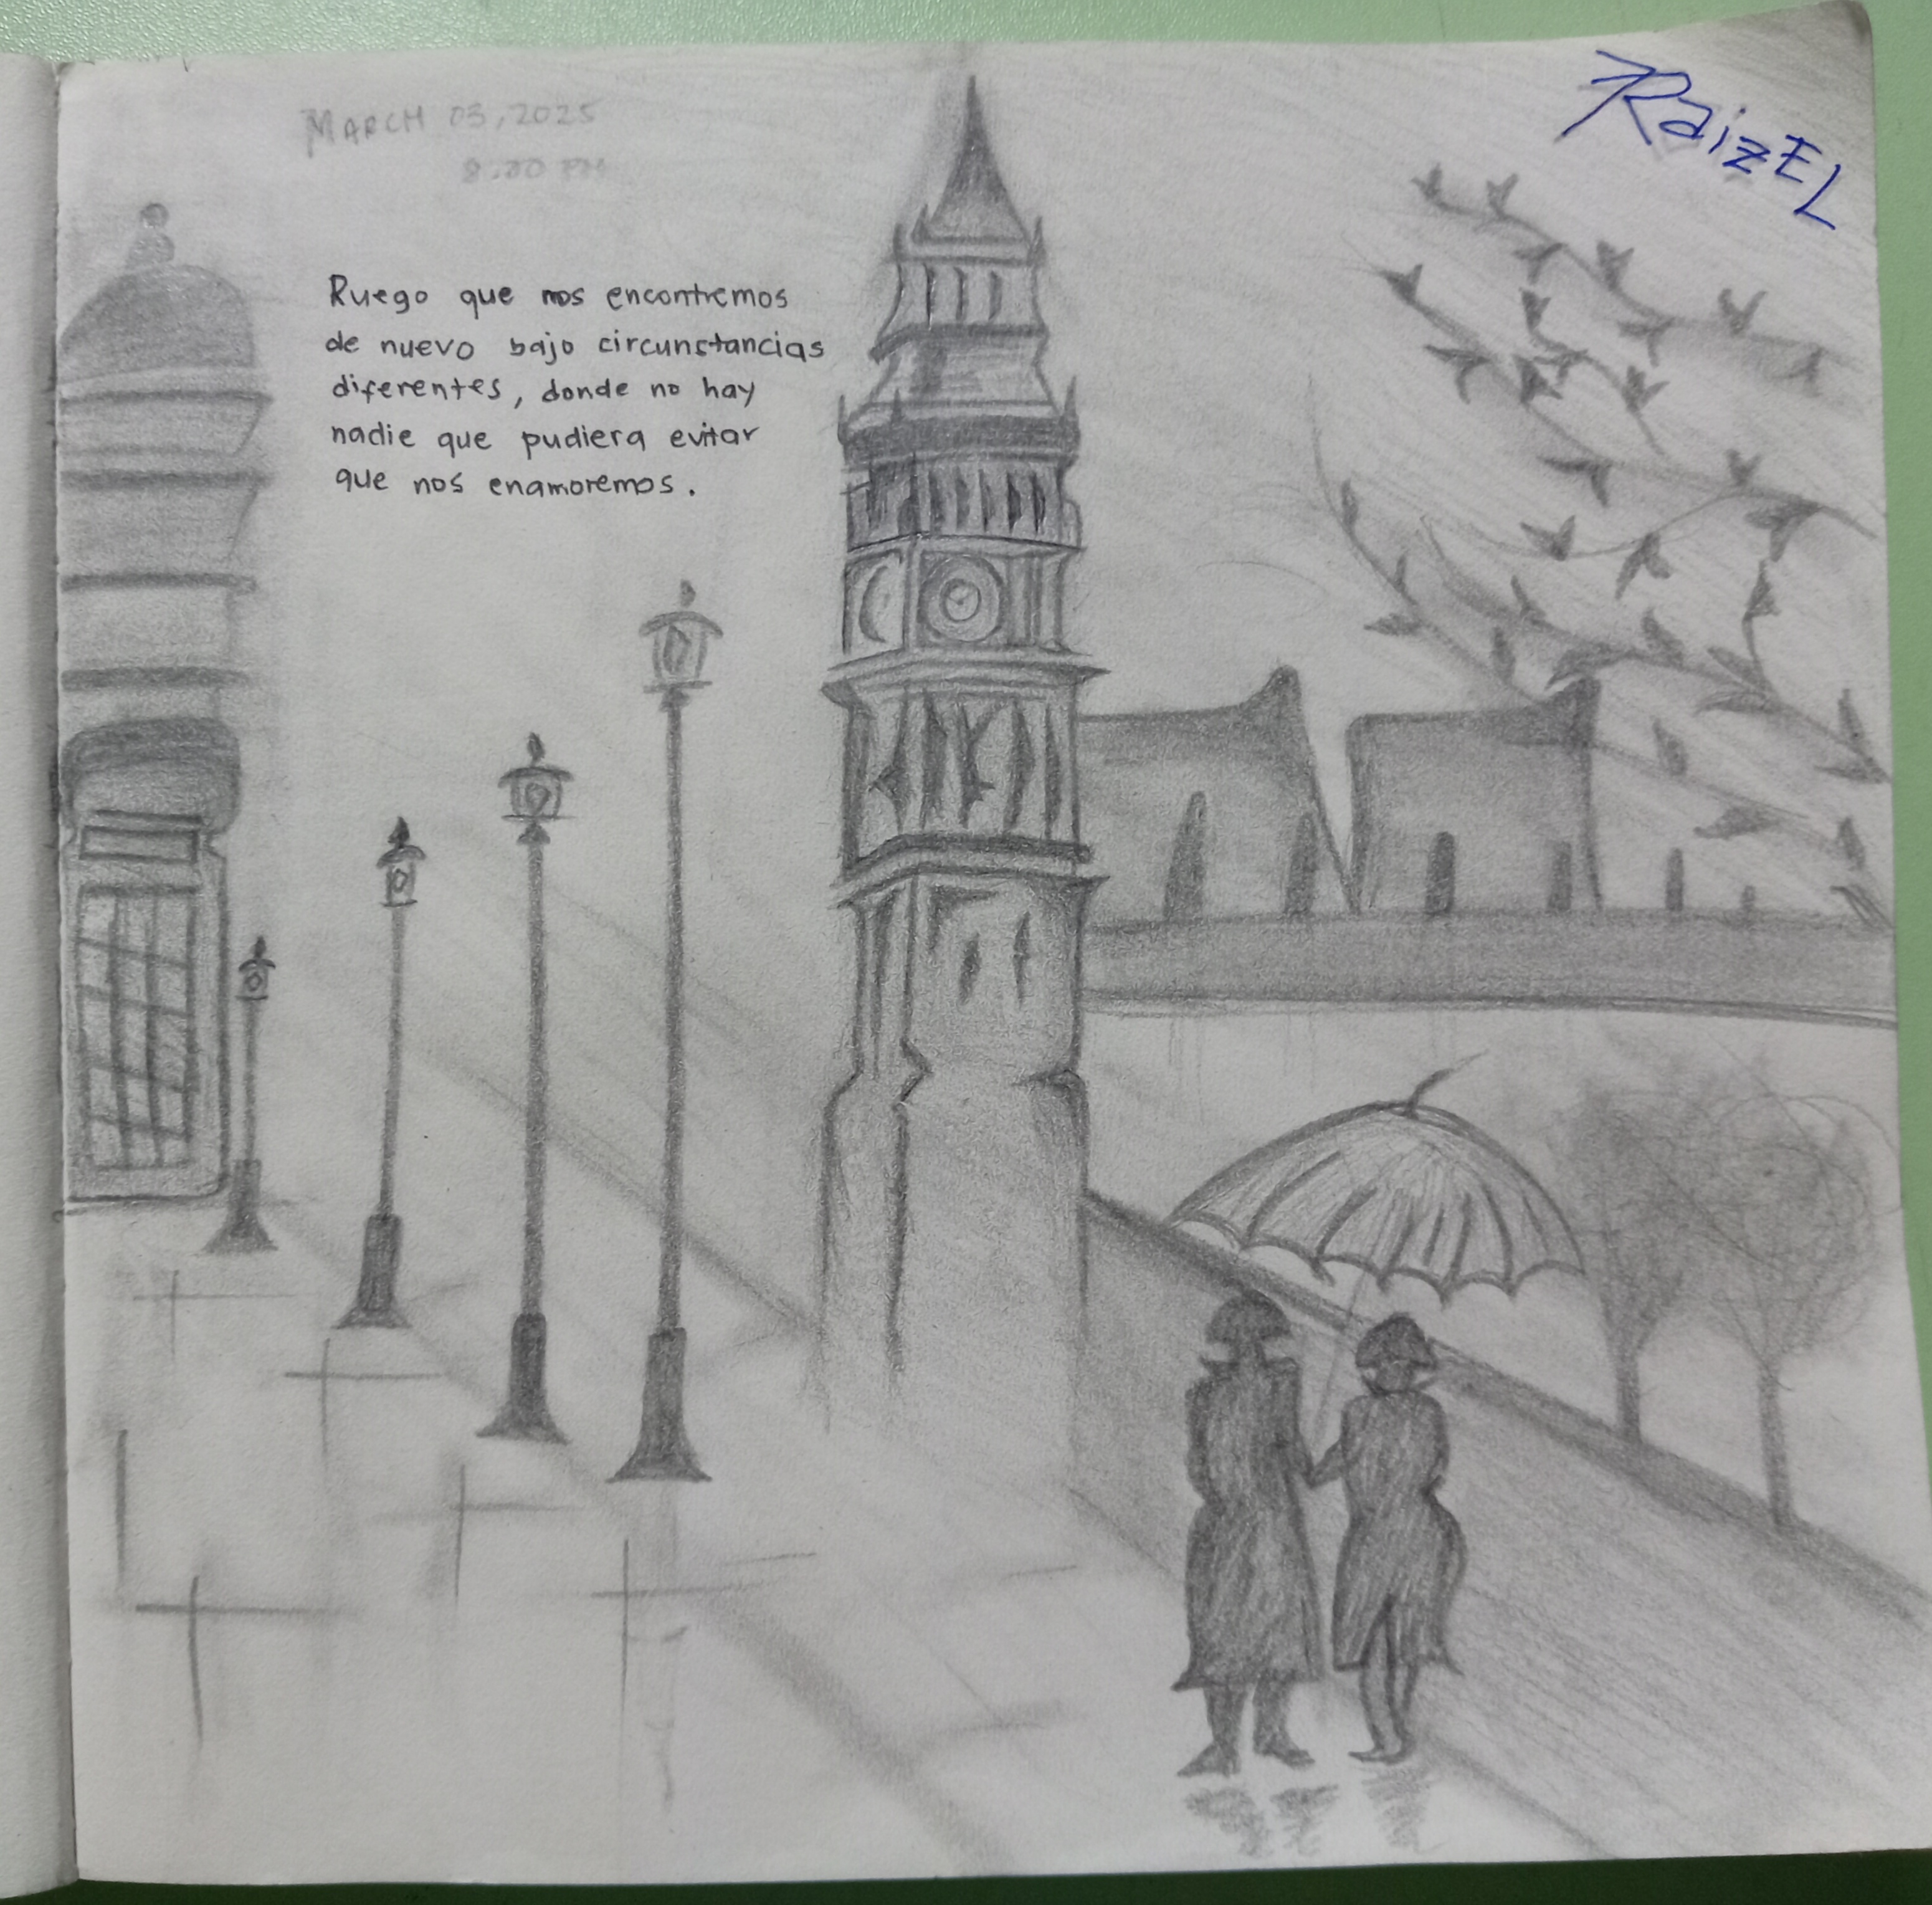 MARCH 03, 2025
8:00 PM
RaizEL
Ruego que nos encontremos
de nuevo bajo circunstancias
diferentes, donde no hay
nadie que pudiera evitar
que nos enamoremos.